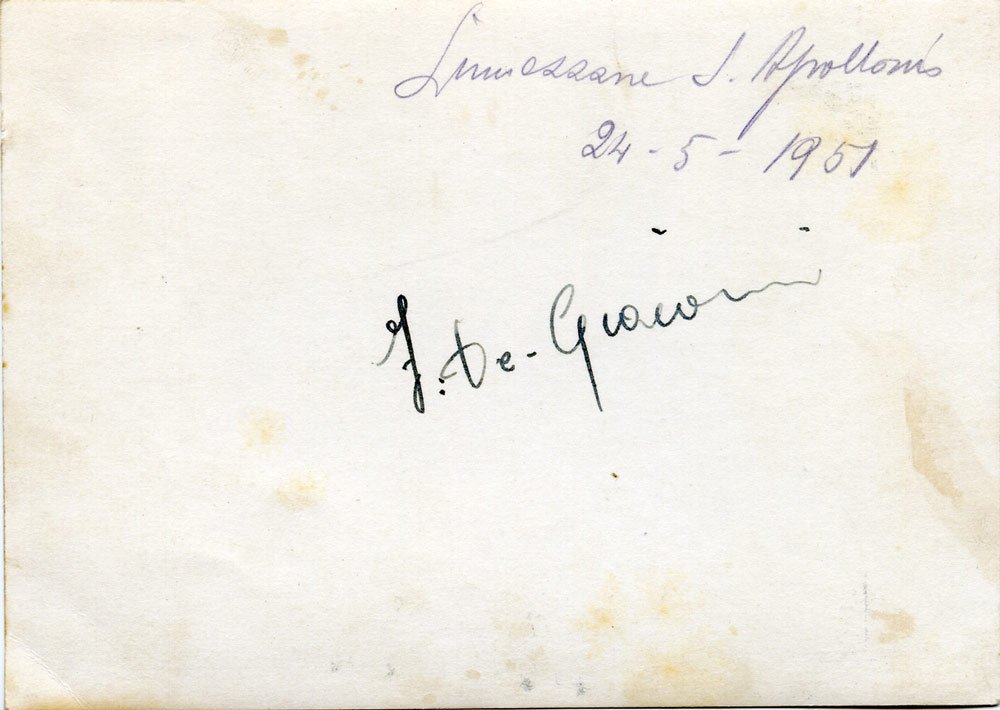 Lumezzane S. Apollonio
24-5-1951
F. De-Giacomi